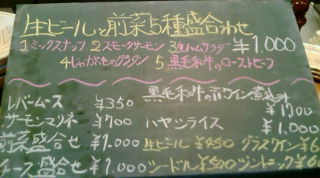 生ビールと前菜5種盛合わせ
1ミックスナッツ 2スモークサーモン 3生ハムサラダ ¥1.000
4じゃがいものグラタン 5黒毛和牛のローストビーフ
レバームース ¥350 黒毛和牛の赤ワイン煮込み
サーモンマリネ ¥700 ¥1700
ハヤシライス ¥1.000
前菜盛合せ ¥1.000 生ビール ¥450 グラスワイン ¥6
チーズ盛合せ ¥1.000 シードル ¥500 ジントニック ¥6